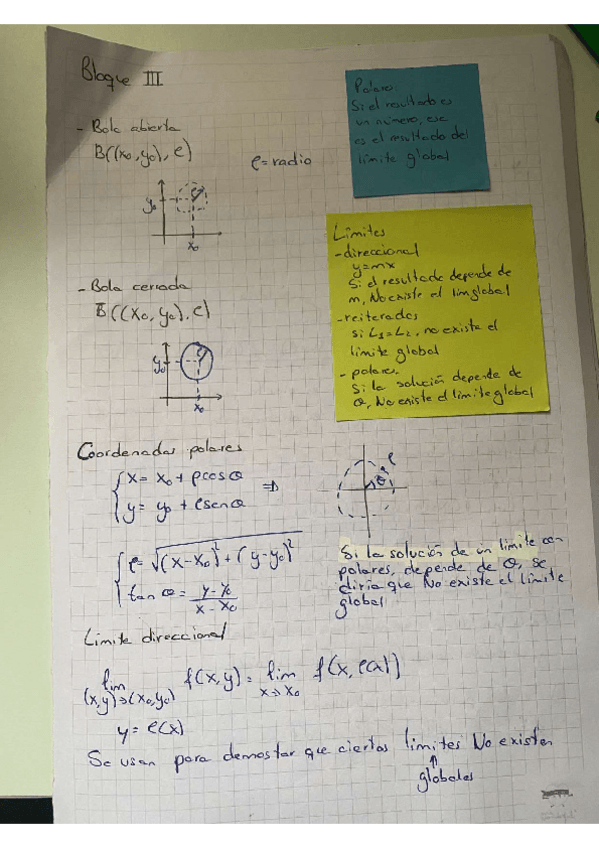 Bloque III
Polares:
Si el resultado es
un número, ese
es el resultado del
límite global
- Bola abierta
B((x₀,y₀), ρ)
ρ = radio
y₀
x₀
Límites
- direccional
y=mx
Si el resultado depende de
m, No existe el lim global
- reiterados
si L₁=L₂, no existe el
límite global
- polares.
Si la solución depende de
θ, No existe el limite global
- Bola cerrada
B̄((x₀,y₀), ρ)
y₀
x₀
Coordenadas polares
{x = x₀ + ρcosθ ⇒
{y = y₀ + ρsenθ
ρ
θ
{ρ = √(x-x₀)²+(y-y₀)²
{tan θ = (y-y₀)/(x-x₀)
Si la solución de un límite con
polares, depende de θ, se
diría que No existe el límite
global
Limite direccional
lim (x,y)→(x₀,y₀) f(x,y) = lim x→x₀ f(x,ρ(x))
y = ρ(x)
Se usan para demostar que ciertos limites No existen
↑
globales